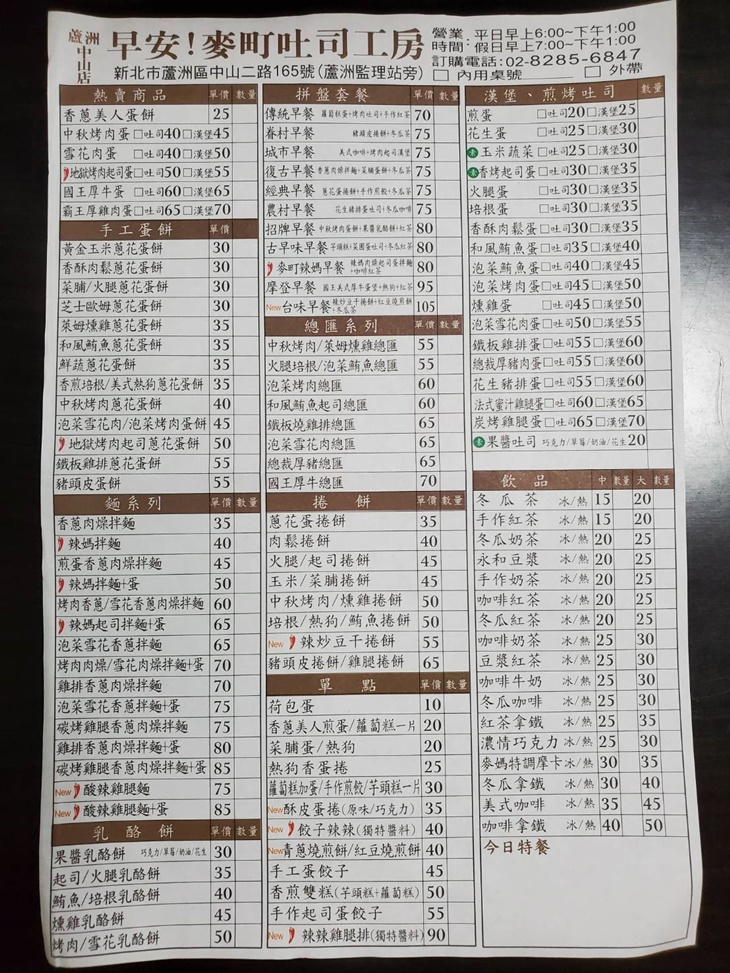 蘆洲
中山店
早安!麥町吐司工房
新北市蘆洲區中山二路165號(蘆洲監理站旁)
營業時間:
平日早上6:00~下午1:00
假日早上7:00~下午1:00
訂購電話:02-8285-6847
□ 內用桌號 □ 外帶
熱賣商品 單價 數量
香蔥美人蛋餅 25
中秋烤肉蛋 □吐司40□漢堡45
雪花肉蛋 □吐司40□漢堡50
地獄烤肉起司蛋□吐司50□漢堡55
國王厚牛蛋 □吐司60□漢堡65
霸王厚雞肉蛋□吐司65□漢堡70
手工蛋餅 單價
黃金玉米蔥花蛋餅 30
香酥肉鬆蔥花蛋餅 30
菜脯/火腿蔥花蛋餅 30
芝士歐姆蔥花蛋餅 30
萊姆燻雞蔥花蛋餅 35
和風鮪魚蔥花蛋餅 35
鮮蔬蔥花蛋餅 35
香煎培根/美式熱狗蔥花蛋餅 35
中秋烤肉蔥花蛋餅 40
泡菜雪花肉/泡菜烤肉蛋餅 45
地獄烤肉起司蔥花蛋餅 50
鐵板雞排蔥花蛋餅 55
豬頭皮蛋餅 55
麵系列 單價 數量
香蔥肉燥拌麵 35
辣媽拌麵 40
煎蛋香蔥肉燥拌麵 45
辣媽拌麵+蛋 50
烤肉香蔥/雪花香蔥肉燥拌麵 60
辣媽起司拌麵+蛋 65
泡菜雪花香蔥拌麵 65
烤肉肉燥/雪花肉燥拌麵+蛋 70
雞排香蔥肉燥拌麵 70
泡菜雪花香蔥拌麵+蛋 75
碳烤雞腿香蔥肉燥拌麵 75
雞排香蔥肉燥拌麵+蛋 80
碳烤雞腿香蔥肉燥拌麵+蛋 85
New 酸辣雞腿麵 75
New 酸辣雞腿麵+蛋 85
乳酪餅 單價 數量
果醬乳酪餅 巧克力/草莓/奶油/花生 30
起司/火腿乳酪餅 35
鮪魚/培根乳酪餅 40
燻雞乳酪餅 45
烤肉/雪花乳酪餅 50
拼盤套餐 單價 數量
傳統早餐 蘿蔔糕蛋+烤肉吐司+手作紅茶 70
眷村早餐 豬頭皮捲餅+冬瓜茶 75
城市早餐 美式咖啡+烤肉起司漢堡 75
復古早餐 香蔥肉燥拌麵+菜脯蛋餅+冬瓜茶 75
經典早餐 蔥花蛋捲餅+手作煎餃+冬瓜茶 75
農村早餐 花生豬排蛋吐司+冬瓜咖啡 75
招牌早餐 中秋烤肉蛋餅+果醬乳酪餅+紅茶 80
古早味早餐 芋頭糕+菜圃蛋吐司+冬瓜紅茶 80
麥町辣媽早餐 辣媽肉燥起司蛋拌麵+咖啡紅茶 80
摩登早餐 國王美式厚牛蛋堡+熱狗+紅茶 95
New台味早餐 辣炒豆干捲餅+紅豆燒煎餅+冬瓜茶 105
總匯系列 單價 數量
中秋烤肉/萊姆燻雞總匯 55
火腿培根/泡菜鮪魚總匯 55
泡菜烤肉總匯 60
和風鮪魚起司總匯 60
鐵板燒雞排總匯 65
泡菜雪花肉總匯 65
總裁厚豬總匯 65
國王厚牛總匯 70
捲餅 單價 數量
蔥花蛋捲餅 35
肉鬆捲餅 40
火腿/起司捲餅 45
玉米/菜脯捲餅 45
中秋烤肉/燻雞捲餅 50
培根/熱狗/鮪魚捲餅 50
New 辣炒豆干捲餅 55
豬頭皮捲餅/雞腿捲餅 65
單點 單價 數量
荷包蛋 10
香蔥美人煎蛋/蘿蔔糕一片 20
菜脯蛋/熱狗 20
熱狗香蛋捲 25
蘿蔔糕加蛋/手作煎餃/芋頭糕一片 30
New酥皮蛋捲(原味/巧克力) 35
New 餃子辣辣(獨特醬料) 40
New青蔥燒煎餅/紅豆燒煎餅 40
手工蛋餃子 45
香煎雙糕(芋頭糕+蘿蔔糕) 50
手作起司蛋餃子 55
New 辣辣雞腿排(獨特醬料) 90
漢堡、煎烤吐司
煎蛋 □吐司20□漢堡25
花生蛋 □吐司25□漢堡30
素玉米蔬菜□吐司25□漢堡30
素香烤起司蛋□吐司30□漢堡35
火腿蛋 □吐司30□漢堡35
培根蛋 □吐司30□漢堡35
香酥肉鬆蛋□吐司30□漢堡35
和風鮪魚蛋□吐司35□漢堡40
泡菜鮪魚蛋□吐司40□漢堡45
泡菜烤肉蛋□吐司45□漢堡50
燻雞蛋 □吐司45□漢堡50
泡菜雪花肉蛋□吐司50□漢堡55
鐵板雞排蛋□吐司55□漢堡60
總裁厚豬肉蛋□吐司55□漢堡60
花生豬排蛋□吐司55□漢堡60
法式蜜汁雞腿蛋□吐司60□漢堡65
炭烤雞腿蛋□吐司65□漢堡70
素果醬吐司 巧克力/草莓/奶油/花生 20
飲品 中 數量 大 數量
冬瓜茶 冰/熱 15 20
手作紅茶 冰/熱 15 20
冬瓜奶茶 冰/熱 20 25
永和豆漿 冰/熱 20 25
手作奶茶 冰/熱 20 25
咖啡紅茶 冰/熱 20 25
冬瓜紅茶 冰/熱 20 25
咖啡奶茶 冰/熱 25 30
豆漿紅茶 冰/熱 25 30
咖啡牛奶 冰/熱 25 30
冬瓜咖啡 冰/熱 25 30
紅茶拿鐵 冰/熱 25 35
濃情巧克力 冰/熱 25 30
麥媽特調摩卡 冰/熱 30 35
冬瓜拿鐵 冰/熱 30 40
美式咖啡 冰/熱 35 45
咖啡拿鐵 冰/熱 40 50
今日特餐